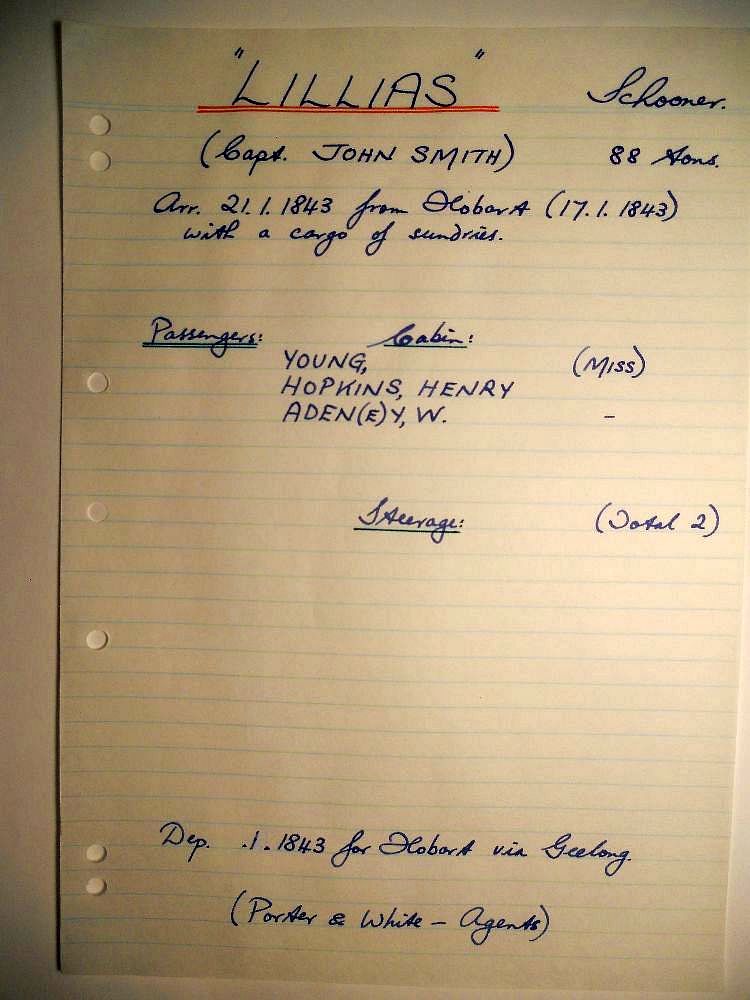 "LILLIAS" Schooner.
(Capt. JOHN SMITH) 88 tons.
Arr. 21.1.1843 from Hobart (17.1.1843)
with a cargo of sundries.
Passengers: Cabin:
YOUNG, (MISS)
HOPKINS, HENRY
ADEN(E)Y, W. -
Steerage: (Total 2)
Dep. .1.1843 for Hobart via Geelong.
(Porter & White - Agents)